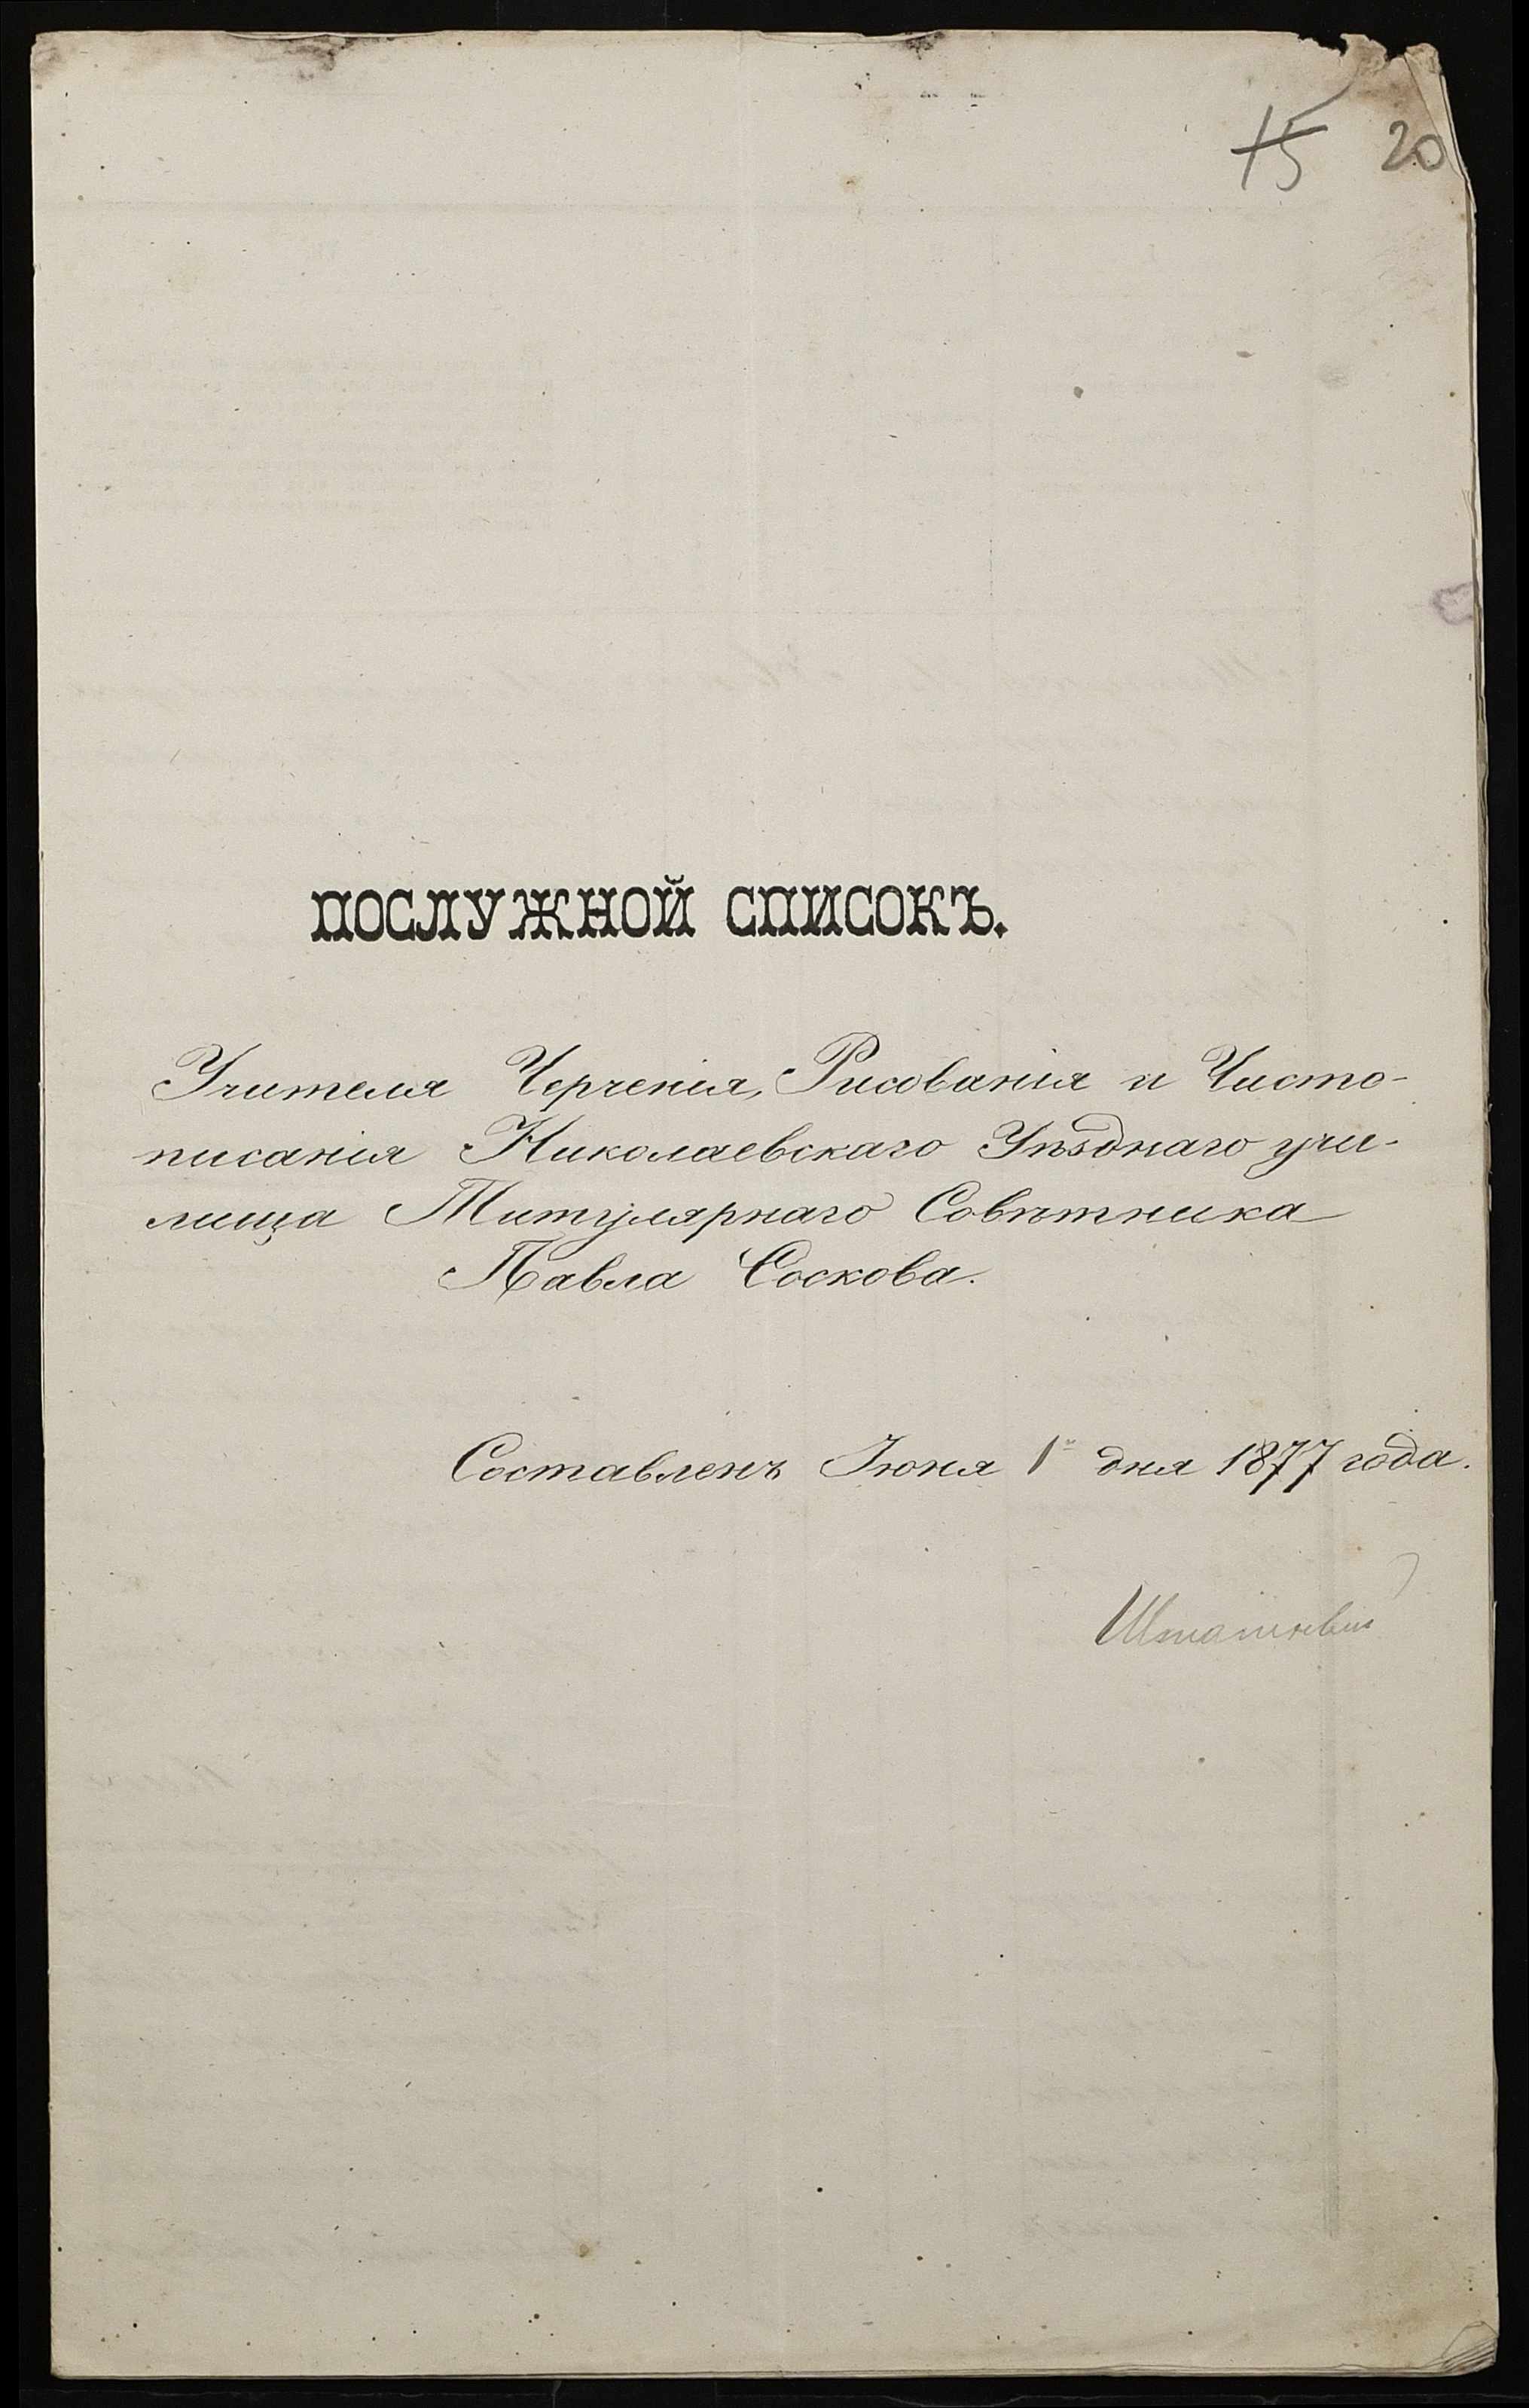 15 20
ПОСЛУЖНОЙ СПИСОКЪ.
Учителя Черченія, Рисованія и Чисто-
писанія Николаевскаго Уѣзднаго учи-
лища Титулярнаго Совѣтника
Павла Соскова.
Составленъ Іюня 1 дня 1877 года.